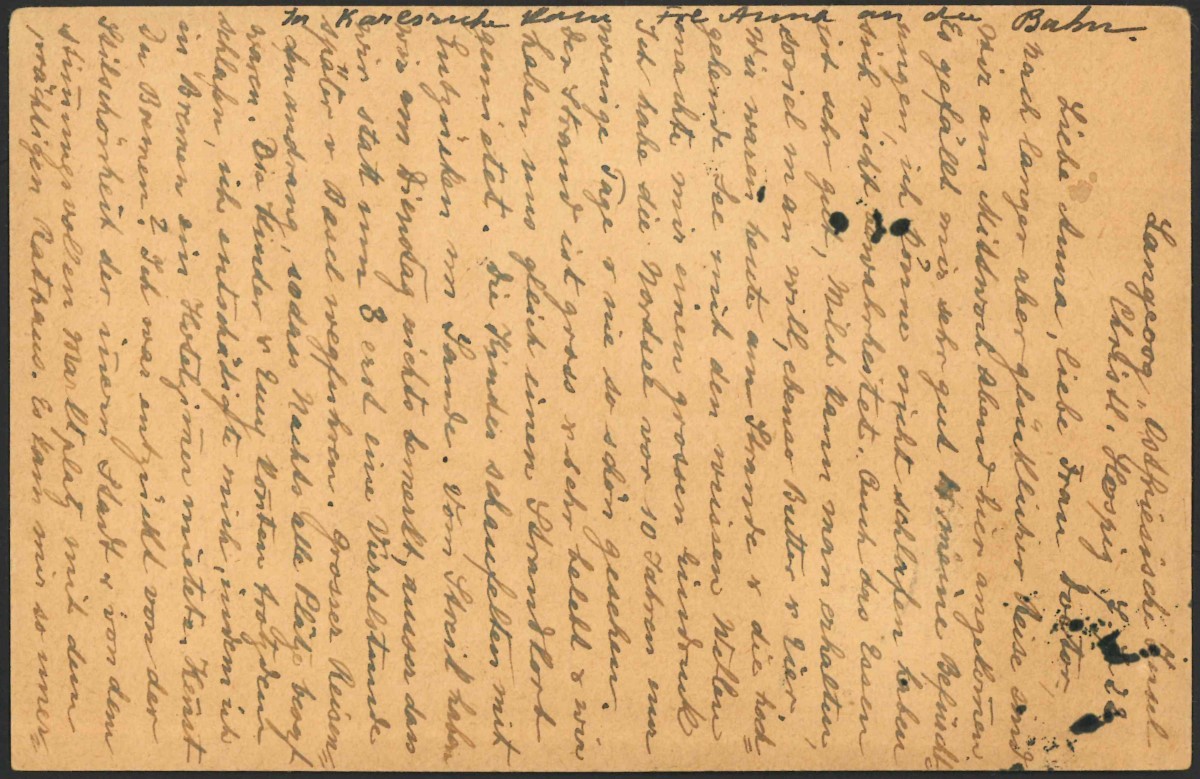 In Karlsruhe kam Frl Anna an die Bahn.
Langeoog, Ostfriesische Insel
Christl. Hospiz
Liebe Anna, liebe Frau Doktor,
nach langer aber glücklicher Reise sind
wir am Mittwoch abend hier angekomen
Es gefällt mir sehr gut & meine Befürch
tungen, ich könne nicht schlafen haben
sich nicht bewahrheitet. Auch das Essen
ist sehr gut, Milch kann man erhalten,
soviel man will, ebenso Butter & Eier.
Wir waren heute am Strande & die hoch=
gehende See mit den weissen Wellen
machte mir einen grossen Eindruck
Ich habe die Nordsee vor 10 Jahren nur
wenige Tage & nie so schön gesehen.
Der Strand ist gross & sehr belebt & wir
haben uns gleich einen Strandkorb
gemietet. Die Kinder schaufelten mit
Entzücken im Sande. Vom Streik haben
wir am Dienstag nichts bemerkt, ausser dass
wir statt um 8 erst eine Viertelstunde
später v Basel wegfuhren. Grosser Reisen=
den andrang, sodass Nachts alle Plätze besetzt
waren. Die Kinder & Emy konten trotzdem
schlafen, ich entschädigte mich, indem ich
in Bremen ein Hotelzimer mietete. Kennst
Du Bremen? Ich war entzückt von der
Stilschönheit der innern Stadt & von dem
stimungsvollen Marktplatz mit dem
prächtigen Rathaus. Es kam mir so uner=